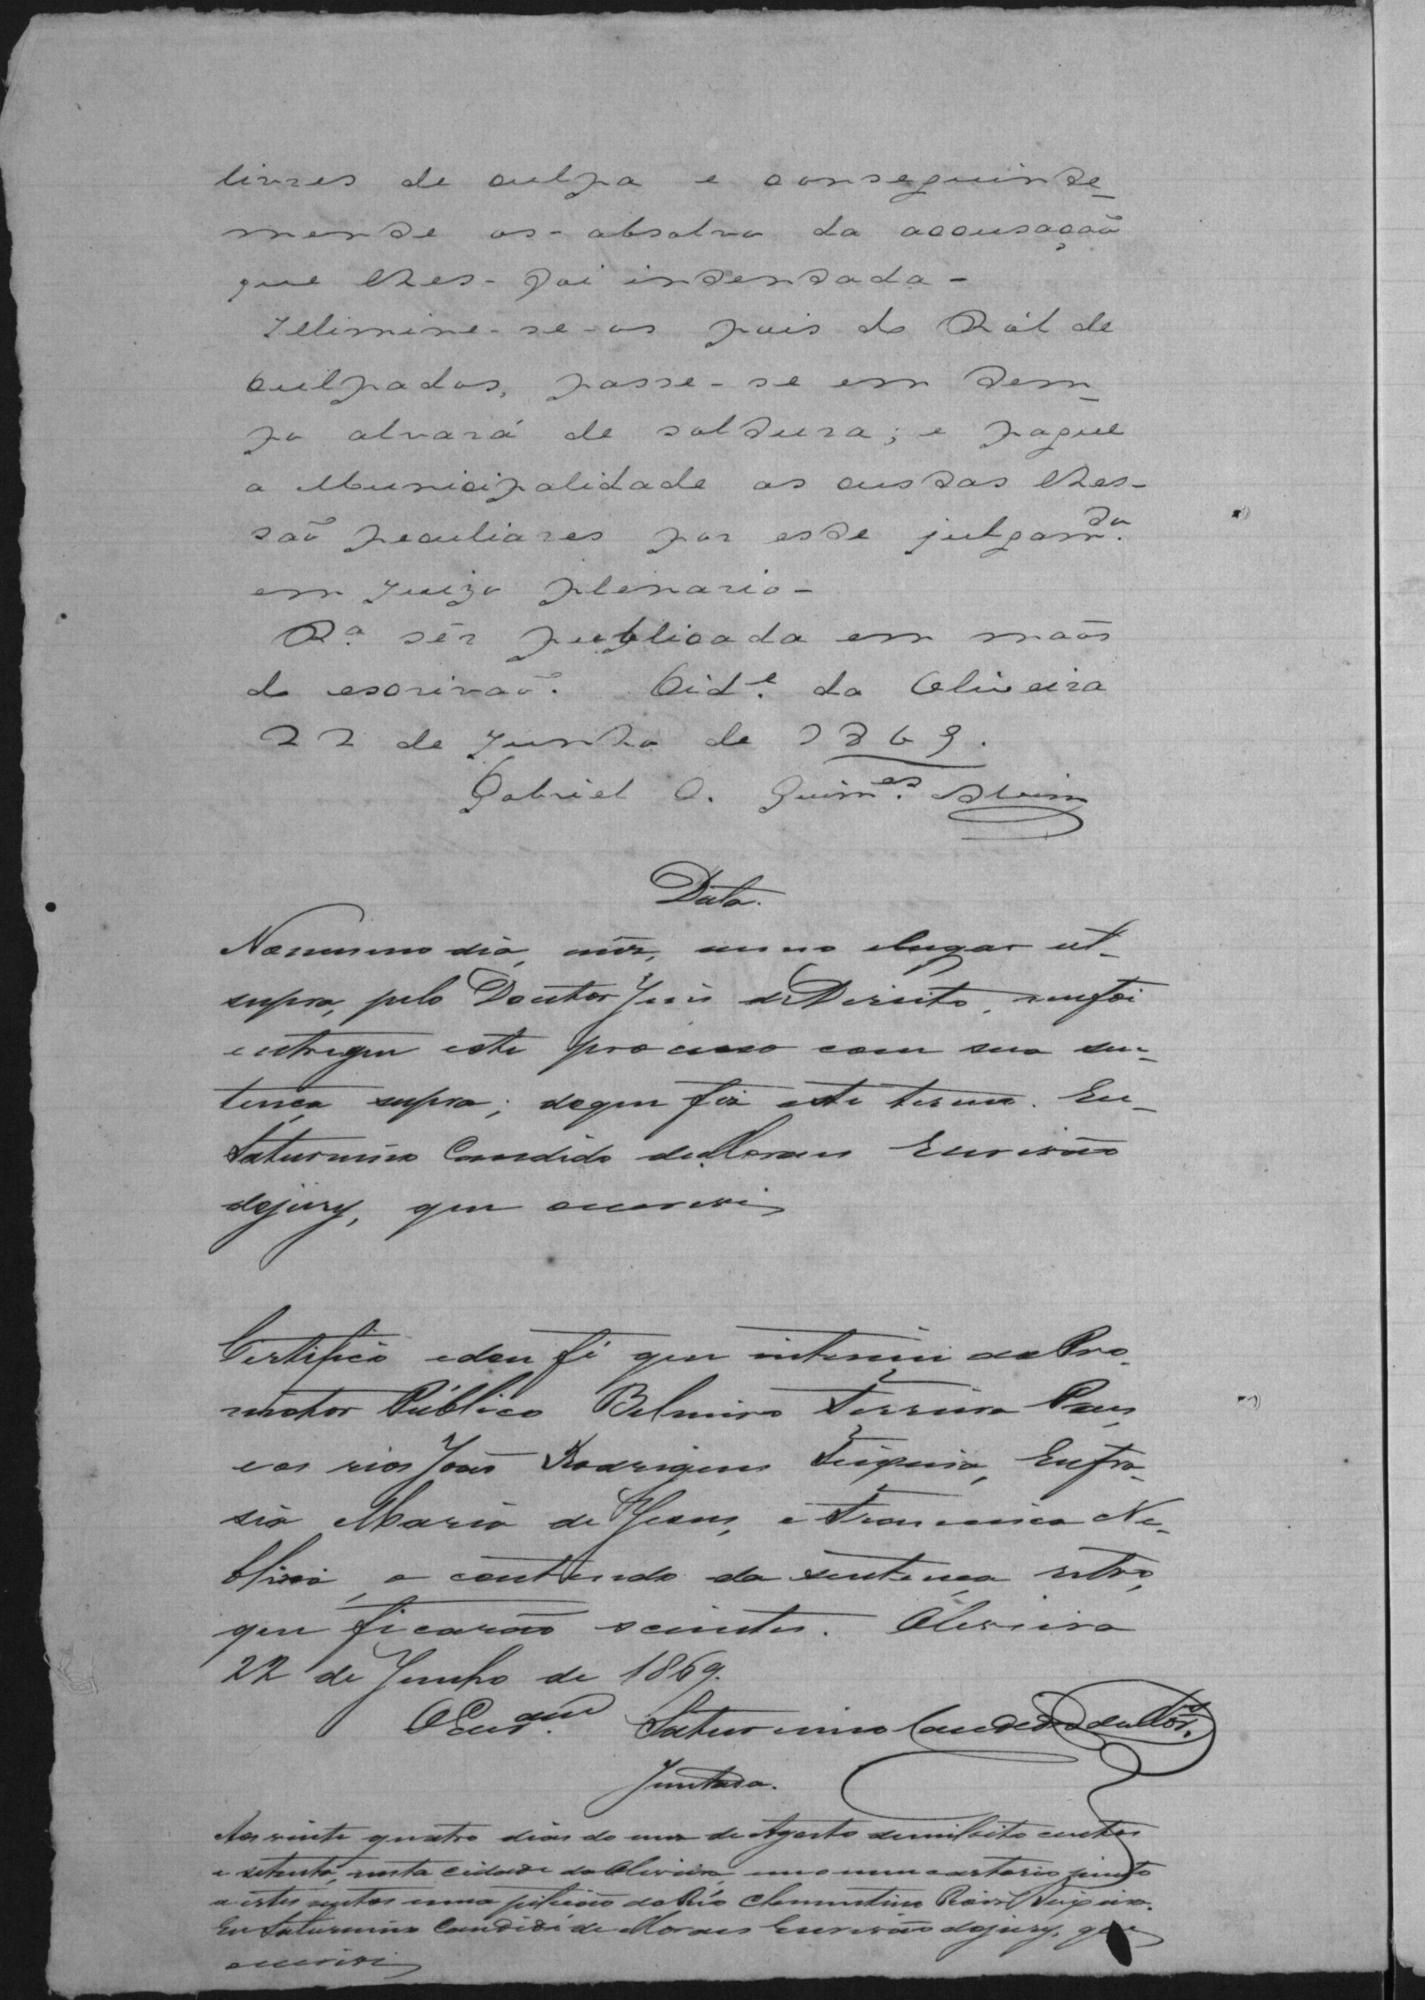 livres de culpa e conseguinte-
mente os-absolvo da accusação
que lhes-foi intentada-
Ellimine-se-os pois do Ról de
Culpados, passe-se em tem-
po alvará de soltura; e pague
a Municipalidade as custas lhes-
são peculiares por este julgam.to
em Juizo plenario-
R.a sêr publicada em mãos
do escrivão. Cid.e da Oliveira
22 de Junho de 1869.
Gabriel C. Guim.es
Data.
No mesmo dia, mêz, anno elugar ut-
supra, pelo Doutor Juis de Direito, me foi
entregue este processo com sua sen-
tença supra; doque fiz este termo. Eu-
Saturnino Candido de Moraes Escrivão
dojury, que o escrevi
Certifico edou fé que intimei ao Pro-
motor Público Belmiro Ferreira Paes,
e os reos João Rodrigues Teixeira, Eufra-
sia Maria de Jesus, e Francisco Ne-
o contheudo da sentença retro,
que ficarão scientes. Oliveira
22 de Junho de 1869.
O Escr.am Saturnino Candido de Mor.es
Juntada.
Aos vinte quatro dias do mez de Agosto de mil oito centos
e setenta, nesta cidade da Oliveira, em o meu cartorio junto
a estes autos uma petição do Réo Clementino Roiz Teixeira.
Eu Saturnino Candido de Moraes Escrivão dojury, que
o escrevi